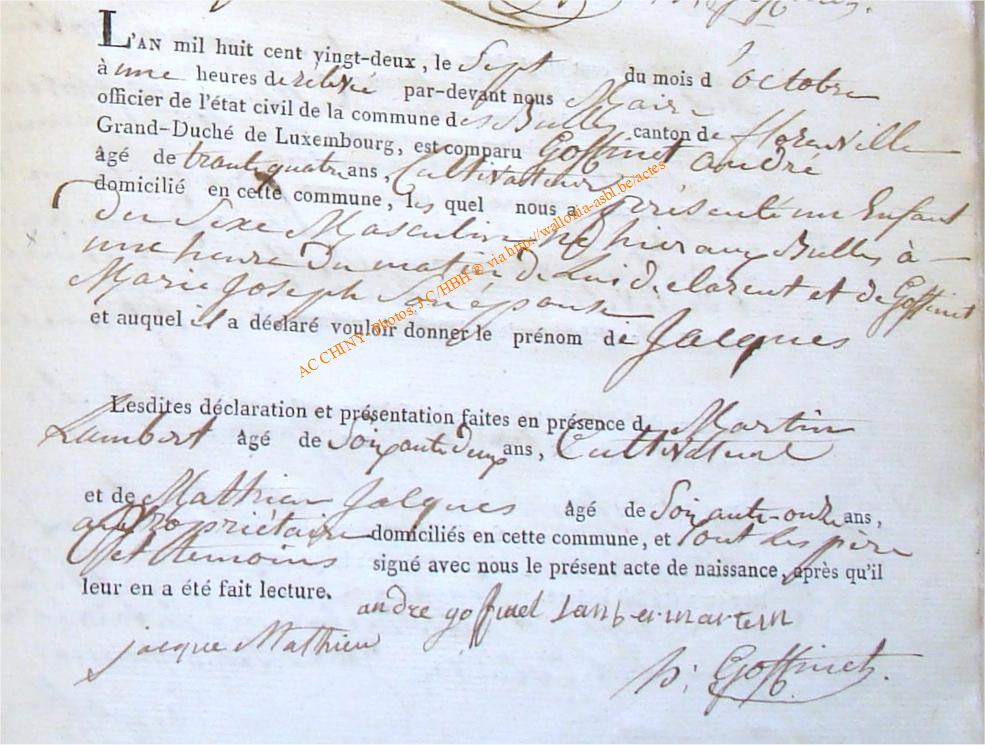 L'AN mil huit cent vingt-deux, le Sept du mois d'octobre
à une heures de relevé par-devant nous Maire
officier de l'état civil de la commune des Bulles canton de florenville
Grand-Duché de Luxembourg, est comparu Goffinet andré
âgé de trente quatre ans, Cultivateur
domicilié en cette commune, les quel nous a présenté un Enfant
du Sexe Masculin né hier aux Bulles à
une heure du matin de Lui déclarent et de Goffinet
Marie Joseph Son épouse
et auquel il a déclaré vouloir donner le prénom de Jacques
Lesdites déclaration et présentation faites en présence d Martin
Lambert âgé de Soixante deux ans, Cultivateur
et de Mathieu Jacques âgé de Soixante-onze ans,
aussi propriétaire domiciliés en cette commune, et ont les père
et temoins signé avec nous le présent acte de naissance, après qu'il
leur en a été fait lecture.
andre goffinet Lamber martin
jacque Mathieu
Goffinet
AC CHINY - Photos, J C/HBH ® via http://wallonia-asbl.be/actes